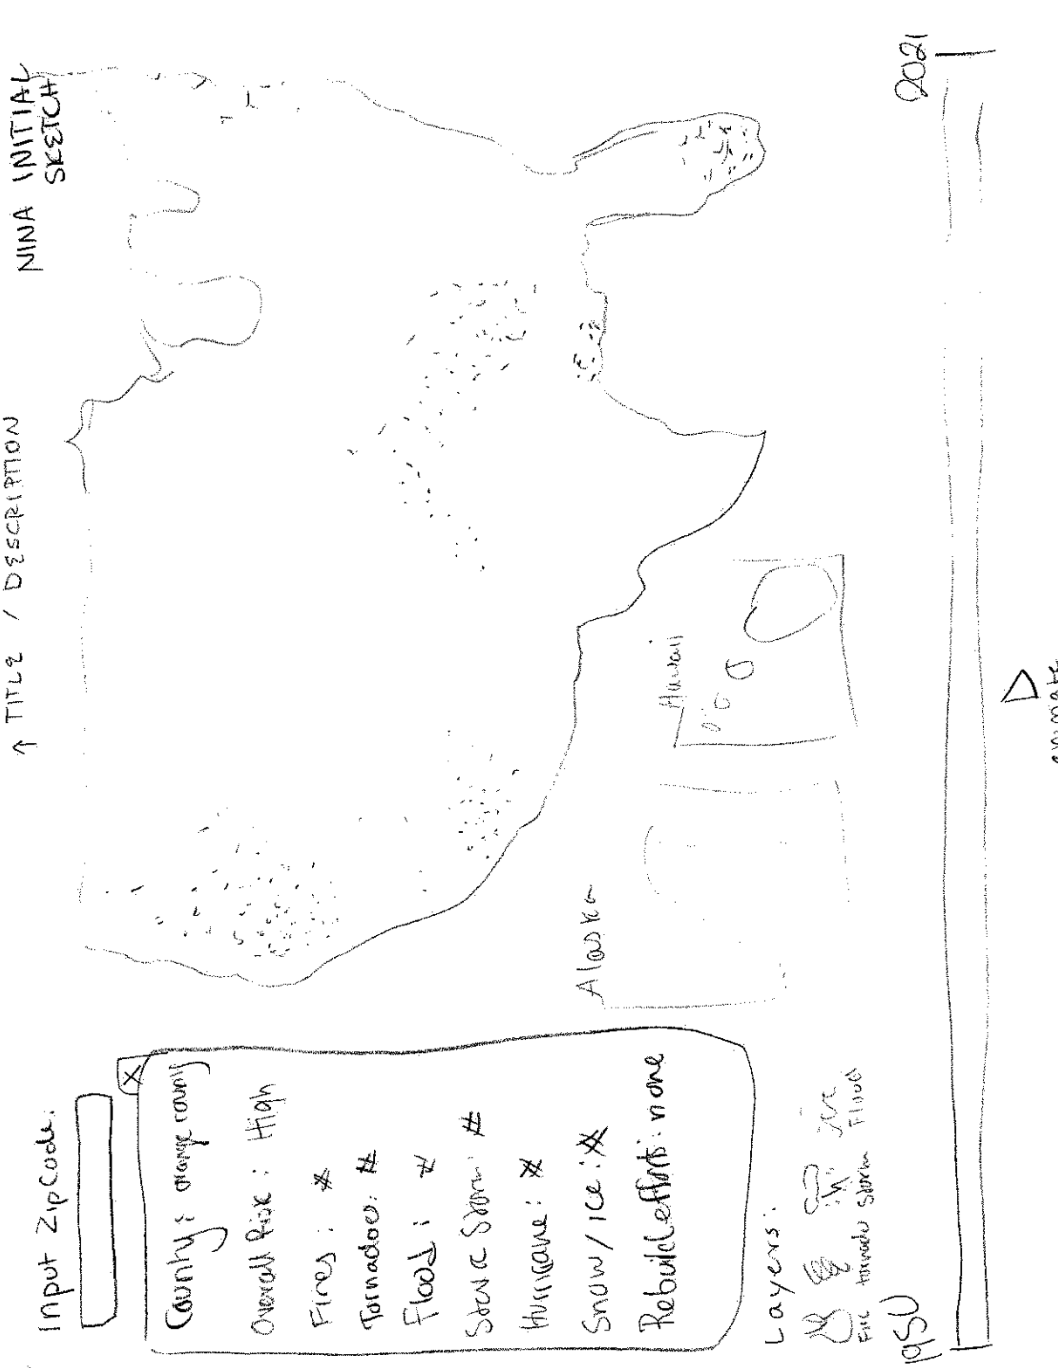 NINA INITIAL
SKETCH
↑ TITLE / DESCRIPTION
Input ZipCode:
X
County: orange county
Overall Risk: High
Fires: #
Tornadoe: #
Flood: #
Severe Storm: #
Hurricane: #
Snow/ice: #
Rebuild efforts: none
Alaska
Hawaii
Layers:
Fire tornado Storm Flood
1950
2021
animate